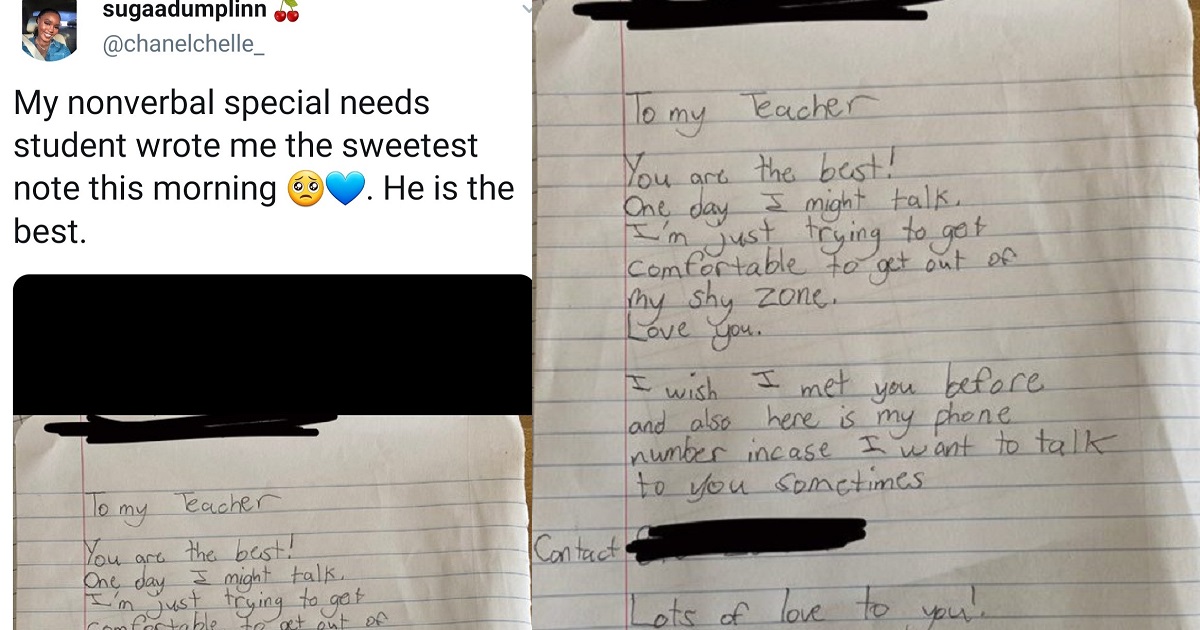 sugaadumplinn 🍒
@chanelchelle_
My nonverbal special needs
student wrote me the sweetest
note this morning 🥺💙. He is the
best.
To my Teacher
You are the best!
One day I might talk.
I'm just trying to get
comfortable to get out of
To my Teacher
You are the best!
One day I might talk.
I'm just trying to get
comfortable to get out of
my shy zone.
Love you.
I wish I met you before
and also here is my phone
number incase I want to talk
to you sometimes
Contact
Lots of love to you!